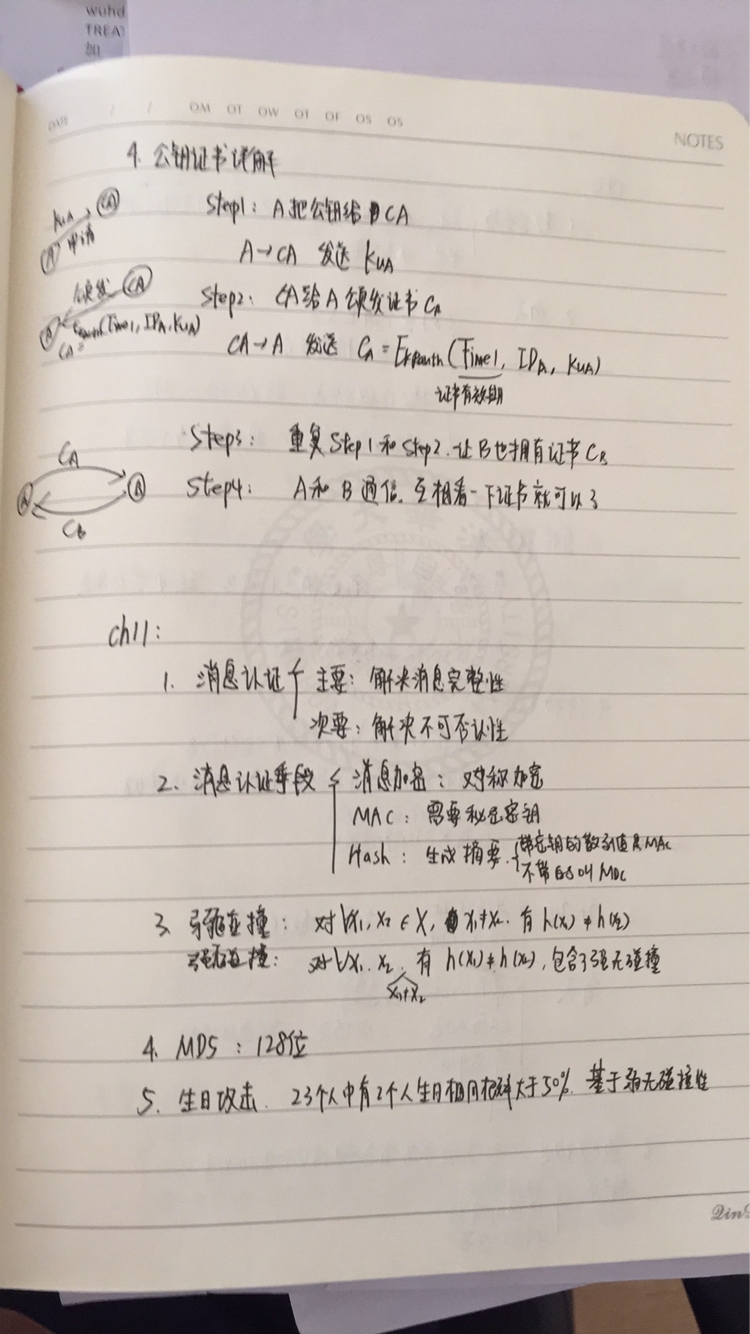 wuhd
TREAT
加
DATE / / OM OT OW OT OF OS OS
NOTES
4. 公钥证书详解
Step1: A把公钥给CA
A→CA 发送 KUA
Step2: CA给A颁发证书CA
CA→A 发送 CA = EKRauth(Time1, IDA, KUA)
证书有效期
Step3: 重复Step1和Step2,让B也拥有证书CB
Step4: A和B通信,互相看一下证书就可以了
KUA CA
A 申请
颁发 CA
A EKRauth(Time1, IDA, KUA)
CA =
CA
A A
Cb
ch11:
1. 消息认证 主要: 解决消息完整性
次要: 解决不可否认性
2. 消息认证手段 消息加密: 对称加密
MAC: 需要秘密密钥
Hash: 生成摘要. 带密钥的散列值是MAC
不带的叫MDC
3. 弱无碰撞: 对∀x1, x2 ∈ X, x1≠x2. 有 h(x1) ≠ h(x2)
强无碰撞: 对∀x1, x2, 有 h(x1) ≠ h(x2), 包含了强无碰撞
x1≠x2
4. MD5: 128位
5. 生日攻击. 23个人中有2个人生日相同概率大于50%. 基于弱无碰撞性